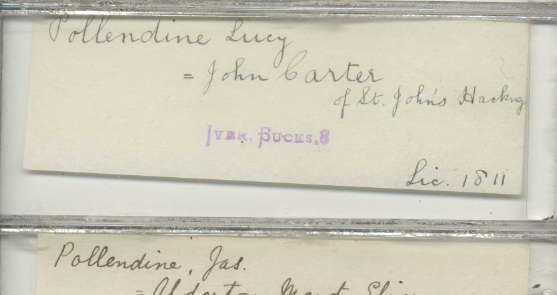 Pollendine Lucy
= John Carter
of St. John's Hackny
IVER, BUCKS, 8
Lic. 1811
Pollendine, Jas.
= Alderton Mar